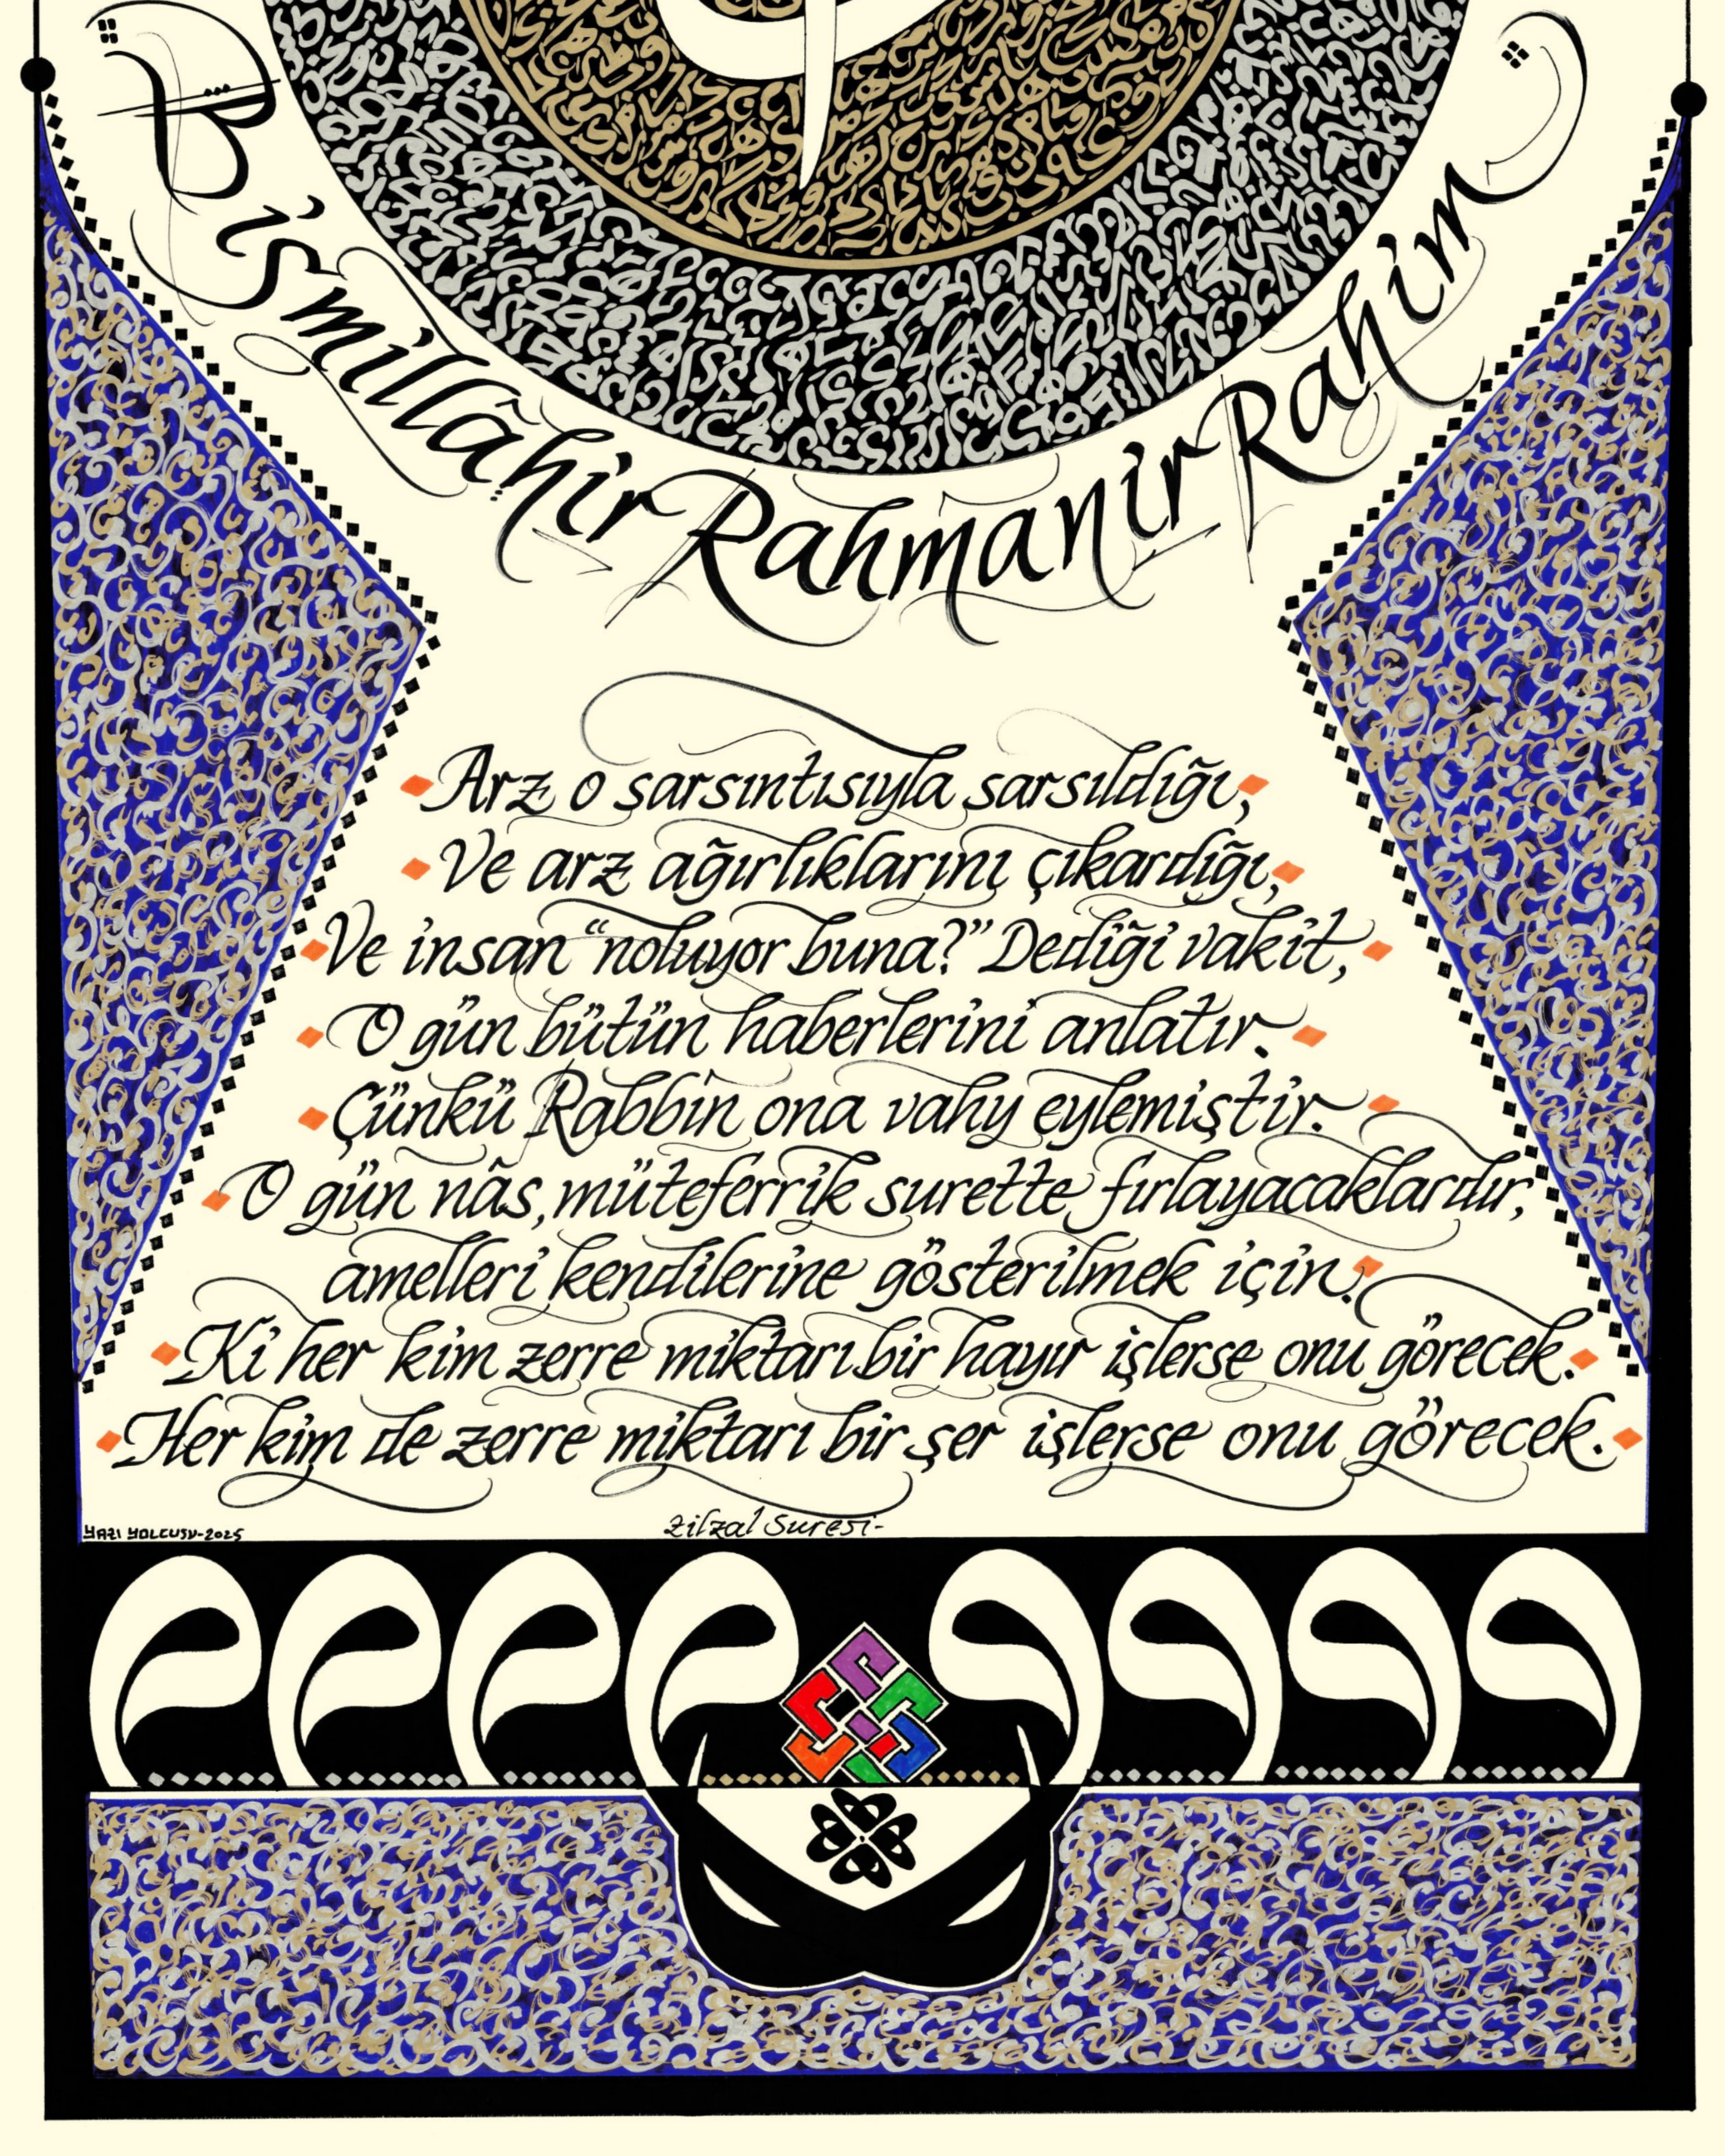 Bismillâhir Rahmanir Rahim
Arz o sarsıntısıyla sarsıldığı,
Ve arz ağırlıklarını çıkardığı,
Ve insan “noluyor buna?” Dediği vakit,
O gün bütün haberlerini anlatır.
Çünkü Rabbin ona vahy eylemiştir.
O gün nâs, müteferrik surette fırlayacaklardır,
amelleri kendilerine gösterilmek için.
Ki her kim zerre miktarı bir hayır işlerse onu görecek.
Her kim de zerre miktarı bir şer işlerse onu görecek.
Zilzal Suresi-
YAZI YOLCUSU-2025